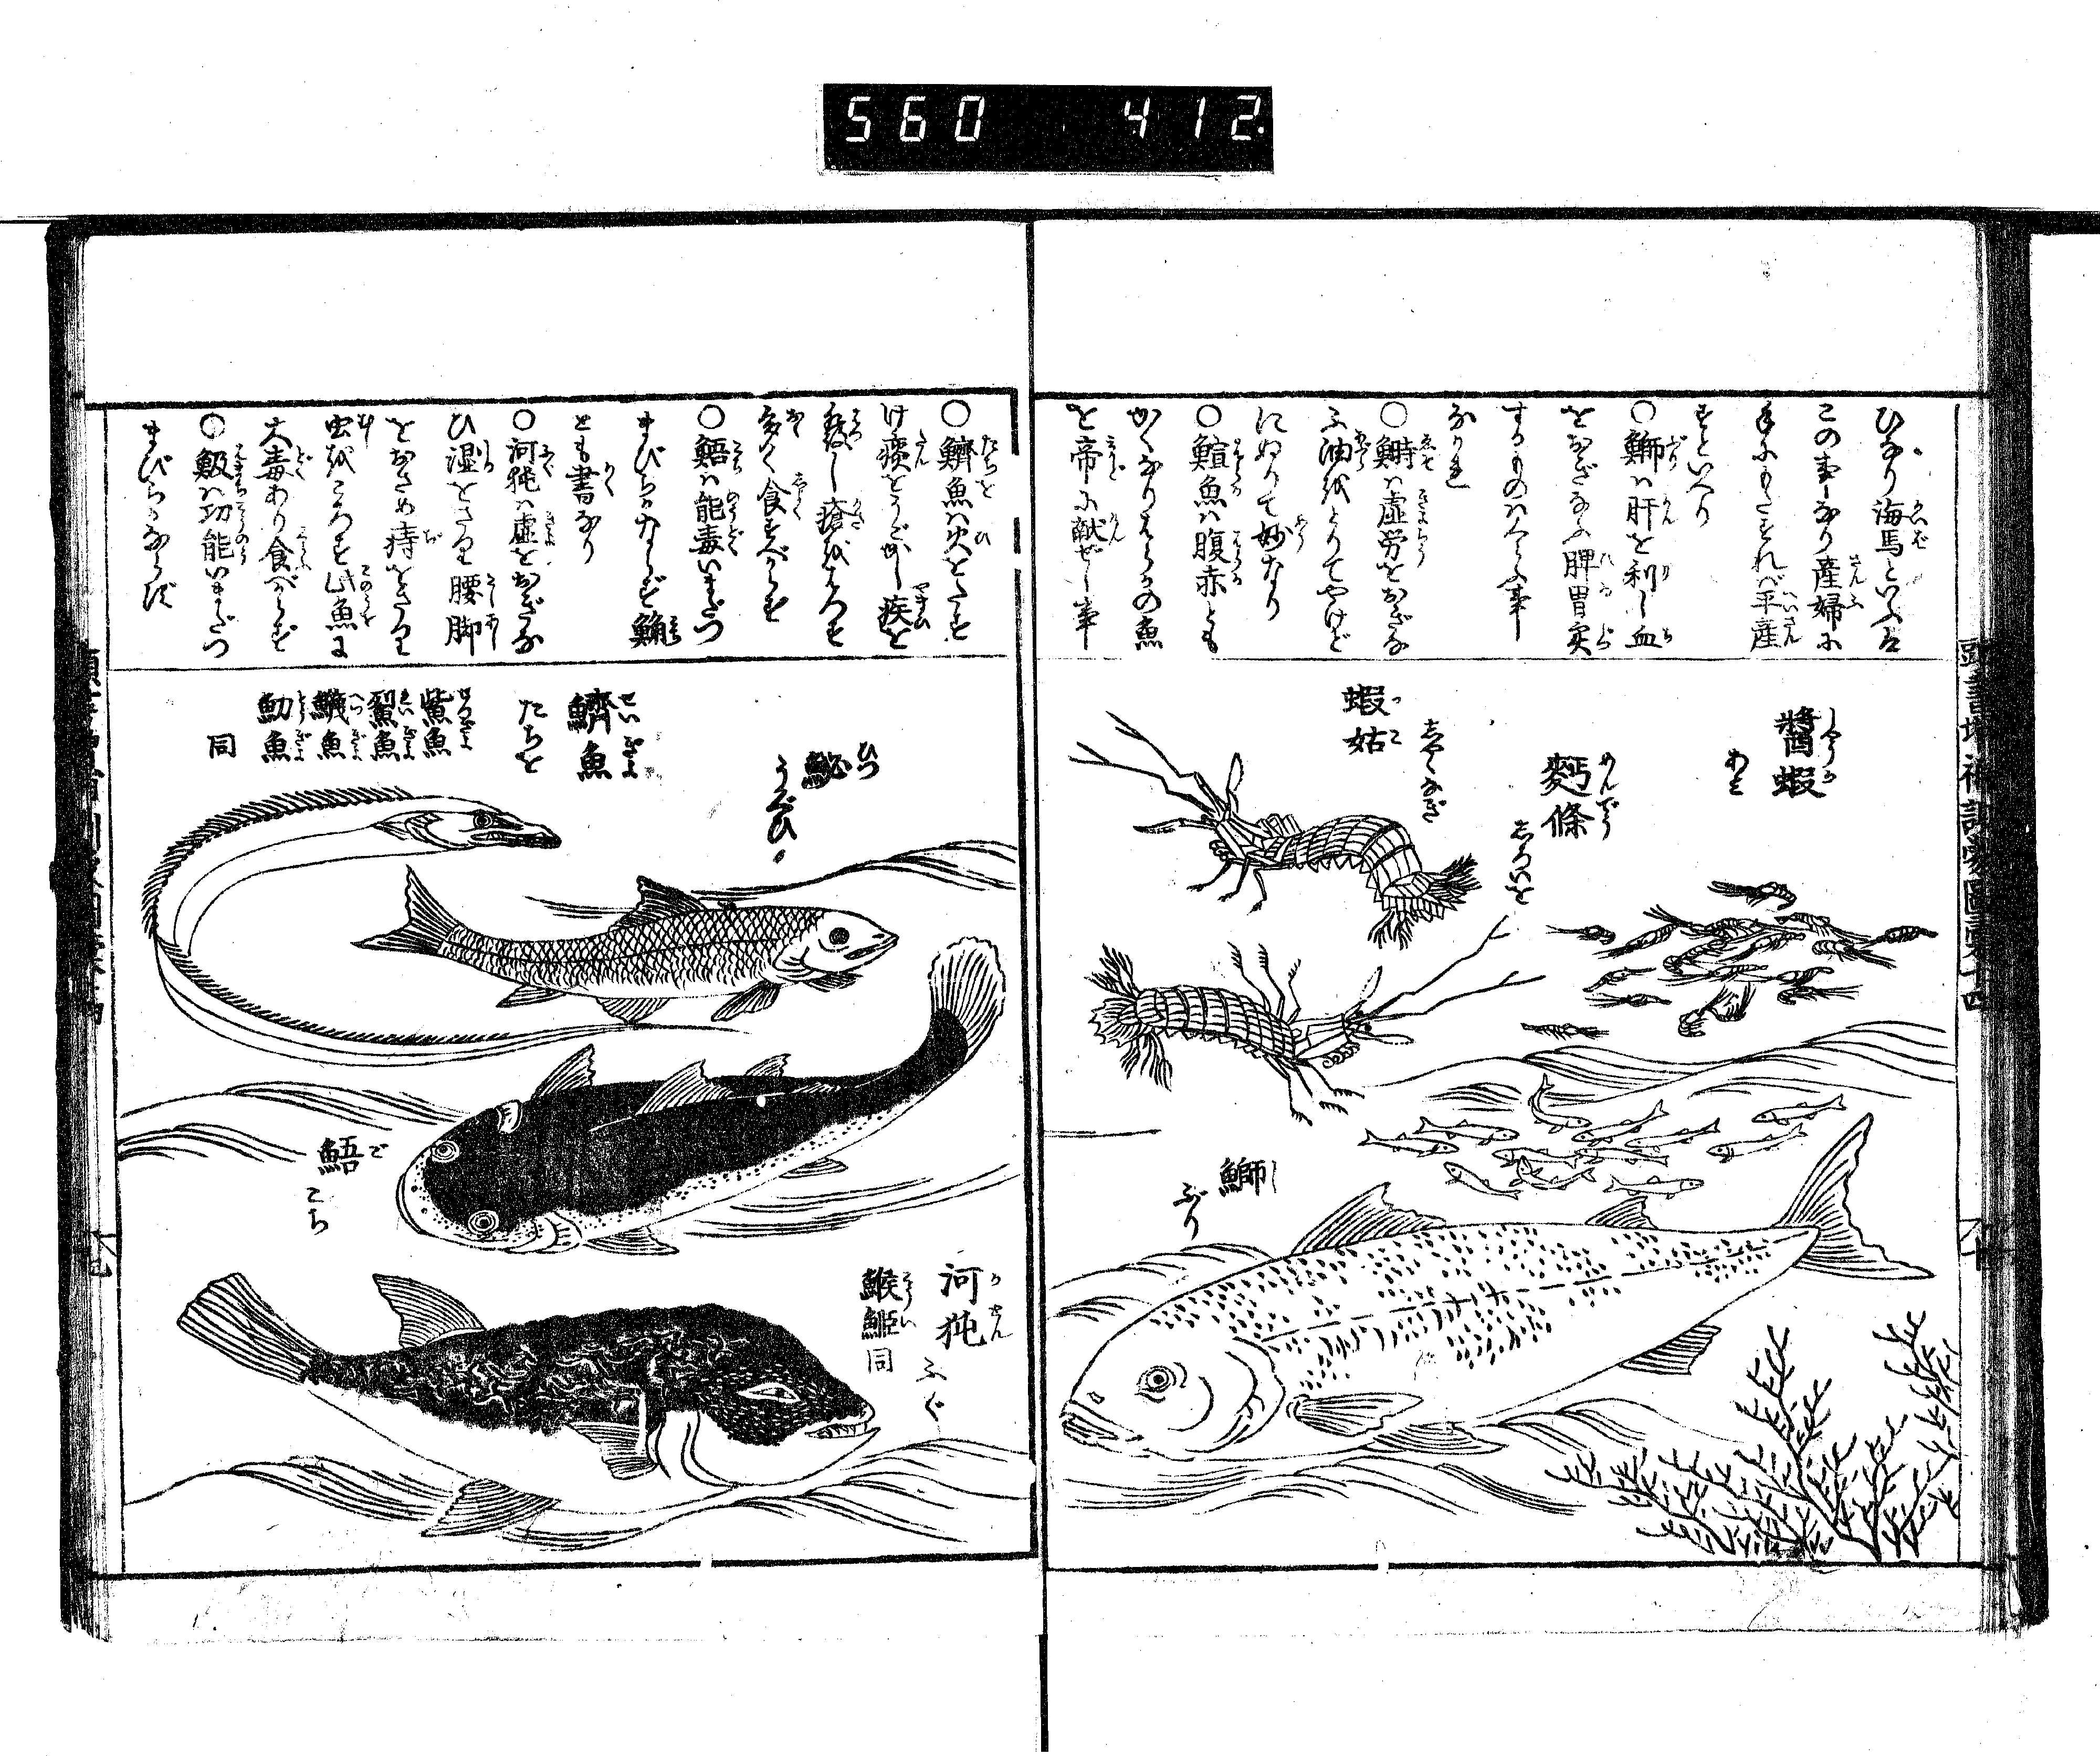 560 412.
ひなり海馬といふはこの事なり産婦に手にもたすれば平産すといへり
○鰤ハ肝を利し血をおぎなふ脾胃実するものハくらふ事なかれ
○鰣ハ虚労をおぎなふ油をとりてやけどにぬりて妙なり
○鰚魚ハ腹赤ともかくなりはらかの魚を帝に献ぜし事
醤蝦
あみ
麪條
しろいを
蝦姑
しやくなぎ
鰤
ぶり
○鱭魚ハ火をたすけ痰をうごかし疾を発し瘡をはつす多く食すべからず
○䱌ハ能毒いまだつまびらかならず鯒とも書なり
○河㹠ハ虚をおぎなひ湿をさり腰脚をおさめ痔をさり虫をころす此魚は大毒あり食べからず
○魬ハ功能いまだつまびらかならず
鱭魚
たちを
鮆魚
鮤魚
鱴魚
魛魚
同
䱌
こち
河㹠
ふぐ
鯸
同